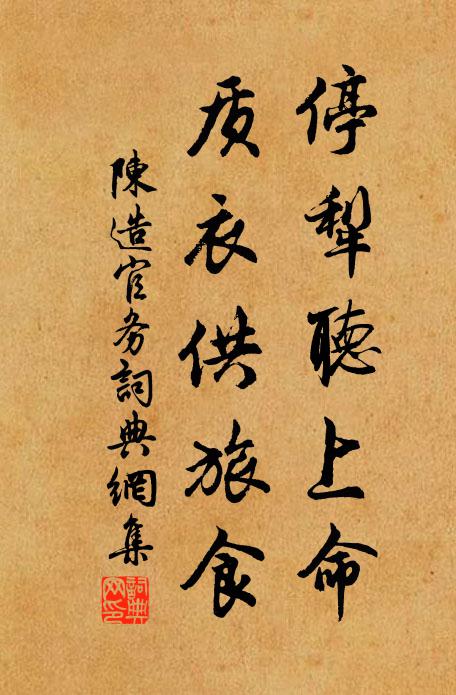 停犁聽上命
质衣供旅食
陳造官务詞典網集
詞典网印